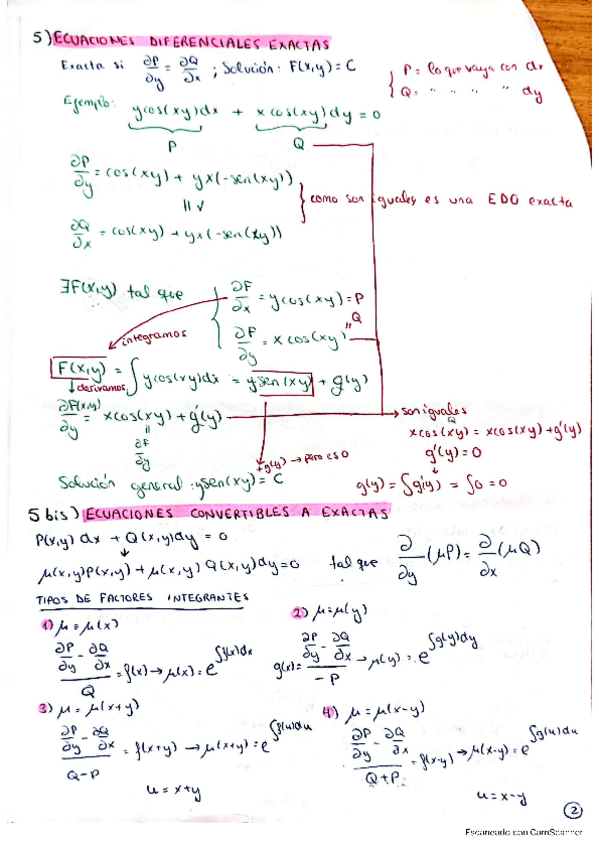 5) ECUACIONES DIFERENCIALES EXACTAS
Exacta si ∂P/∂y = ∂Q/∂x ; Solución: F(x,y) = C
P = lo que vaya con dx
Q = " " " " dy
Ejemplo: ycos(xy)dx + xcos(xy)dy = 0
P Q
∂P/∂y = cos(xy) + yx(-sen(xy))
|| ✓
como son iguales es una EDO exacta
∂Q/∂x = cos(xy) + yx(-sen(xy))
∃F(x,y) tal que
∂F/∂x = ycos(xy) = P
∂F/∂y = xcos(xy) " Q
integramos
F(x,y) = ∫ycos(xy)dx = ysen(xy) + g(y)
↓ derivamos
∂F(x,y)/∂y = xcos(xy) + g'(y) → son iguales
|| ∂F/∂y
Q
xcos(xy) = xcos(xy) + g'(y)
g'(y) = 0
+g(y) → pero es 0
g(y) = ∫g'(y) = ∫0 = 0
Solución general: ysen(xy) = C
5 bis) ECUACIONES CONVERTIBLES A EXACTAS
P(x,y) dx + Q(x,y)dy = 0
↓
μ(x,y)P(x,y) + μ(x,y) Q(x,y)dy = 0 tal que ∂/∂y (μP) = ∂/∂x (μQ)
TIPOS DE FACTORES INTEGRANTES
1) μ = μ(x)
(∂P/∂y - ∂Q/∂x)/Q = f(x) → μ(x) = e^∫f(x)dx
2) μ = μ(y)
g(x) = (∂P/∂y - ∂Q/∂x)/-P → μ(y) = e^∫g(y)dy
3) μ = μ(x+y)
(∂P/∂y - ∂Q/∂x)/(Q-P) = f(x+y) → μ(x+y) = e^∫f(u)du
u = x+y
4) μ = μ(x-y)
(∂P/∂y - ∂Q/∂x)/(Q+P) = f(x-y) → μ(x-y) = e^∫g(u)du
u = x-y
2
Escaneado con CamScanner